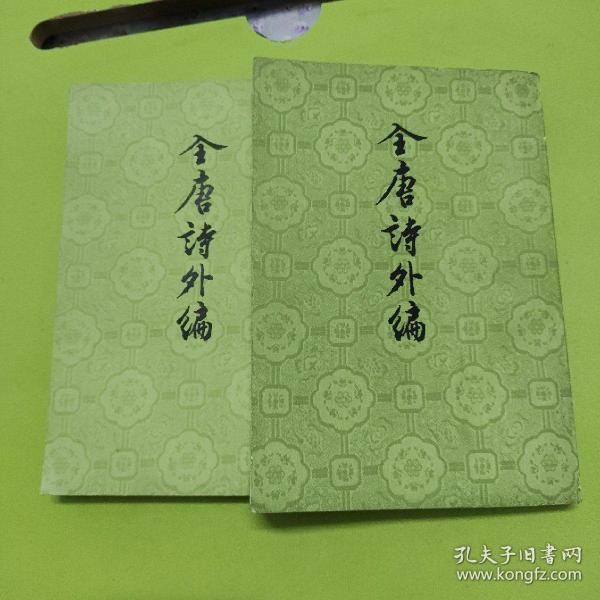 全唐詩外編
全唐詩外編
孔夫子旧書网
www.kongfz.com